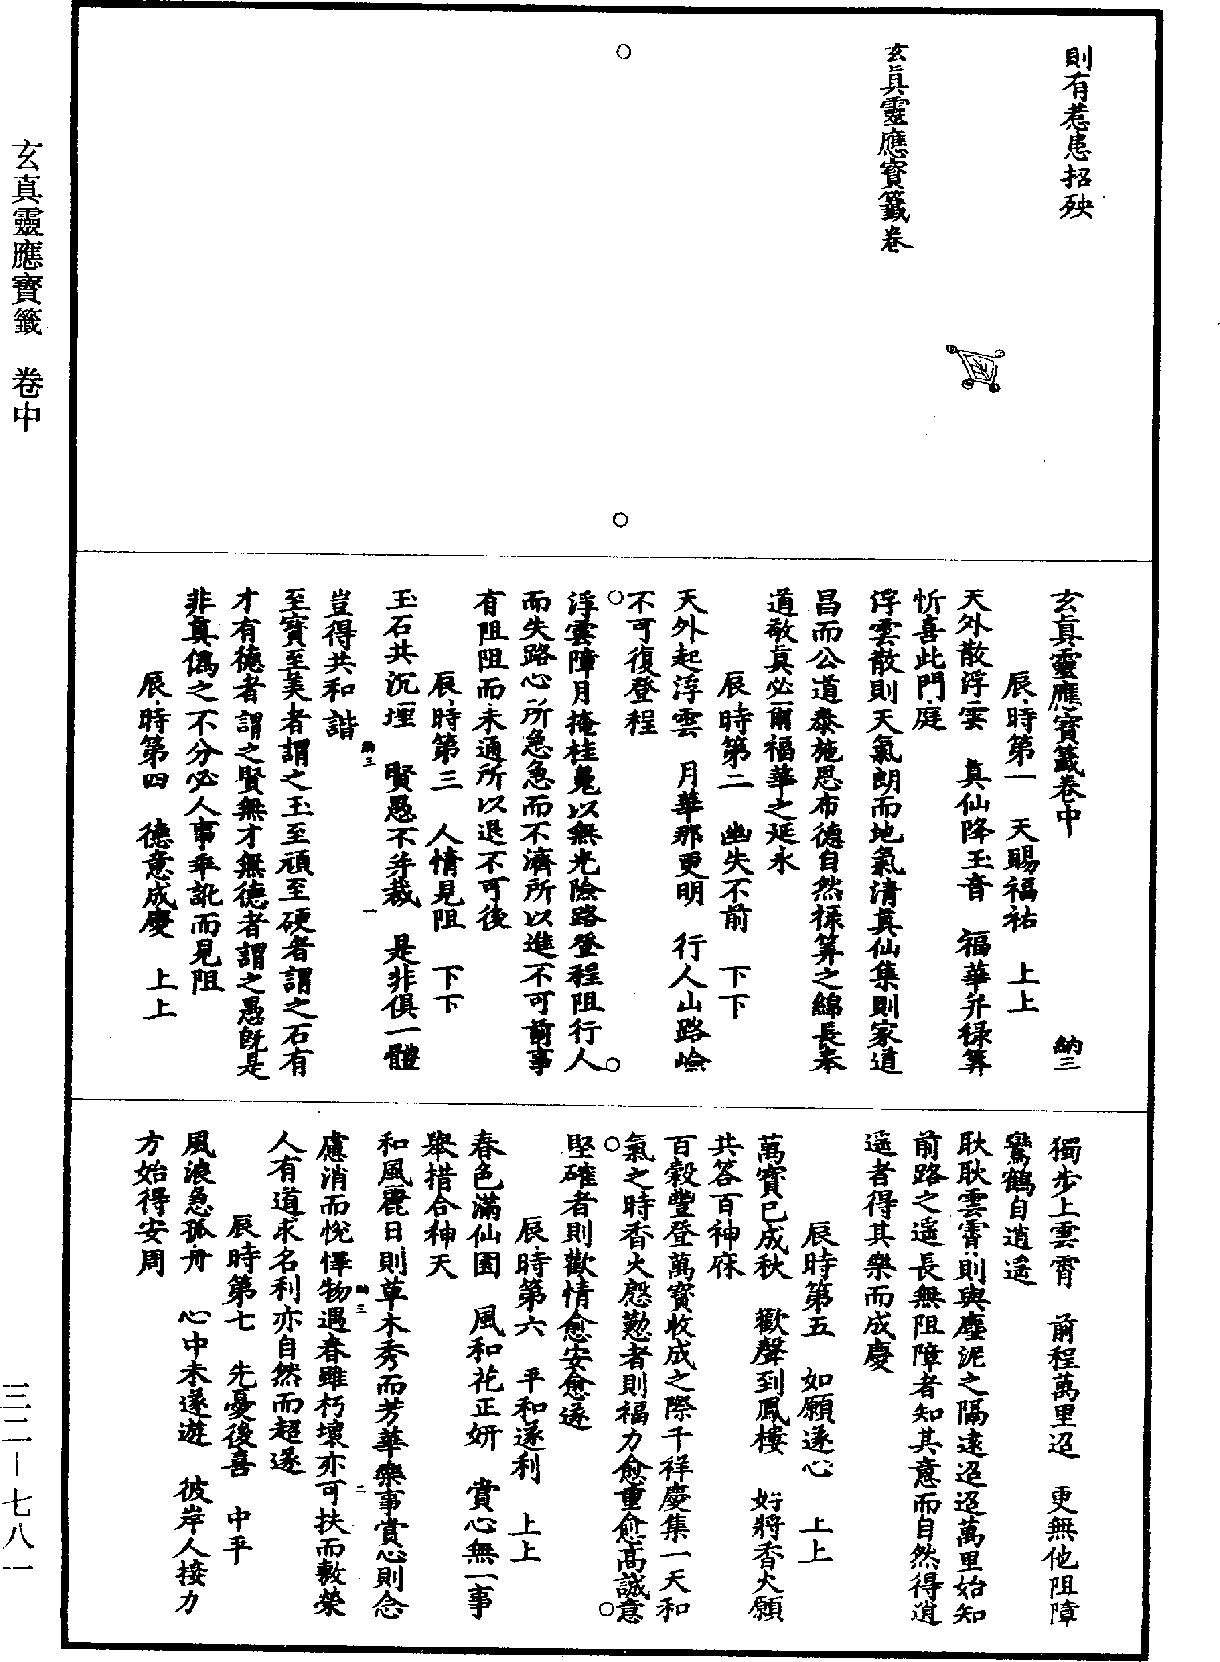 則有惹患招殃
玄真靈應寶籤卷
玄真靈應寶籤卷中　納三
辰時第一　天賜福祐　上上
天外散浮雲　真仙降玉音　福華并祿筭
忻喜此門庭
浮雲散則天氣朗而地氣清真仙集則家道
昌而公道泰施恩布德自然祿筭之綿長奉
道敬真必爾福華之延永
辰時第二　幽失不前　下下
天外起浮雲　月華那更明　行人山路嶮
不可復登程
浮雲障月掩桂魄以無光險路登程阻行人
而失路心所急急而不濟所以進不可前事
有阻阻而未通所以退不可後
辰時第三　人情見阻　下下
玉石共沉埋　賢愚不并裁　是非俱一體
豈得共和諧
至寶至美者謂之玉至頑至硬者謂之石有
才有德者謂之賢無才無德者謂之愚既是
非真偽之不分必人事乖訛而見阻
辰時第四　德意成慶　上上
獨步上雲霄　前程萬里迢　更無他阻障
鸞鶴自逍遙
耿耿雲霄則與塵泥之隔遠迢迢萬里始知
前路之遙長無阻障者知其意而自然得逍
遙者得其樂而成慶
辰時第五　如願遂心　上上
萬寶已成秋　歡聲到鳳樓　好將香火願
共答百神庥
百穀豐登萬寶收成之際千祥慶集一天和
氣之時香火慇懃者則福力愈重愈高誠意
堅確者則歡情愈安愈遂
辰時第六　平和遂利　上上
春色滿仙園　風和花正妍　賞心無一事
舉措合神天
和風麗日則草木秀而芳華樂事賞心則念
慮消而悅懌物遇春雖朽壞亦可扶而敷榮
人有道求名利亦自然而超遂
辰時第七　先憂後喜　中平
風浪急孤舟　心中未遂遊　彼岸人接力
方始得安周
玄真靈應寶籤　卷中
三二－七八一